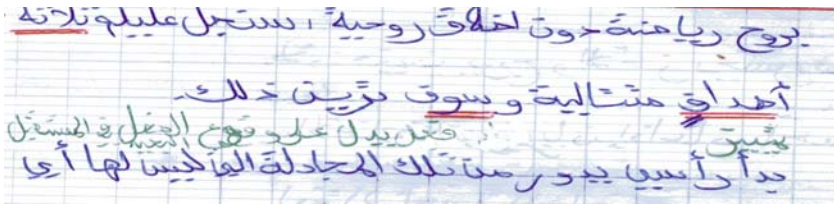 بروح رياضية دون اخلاق روحية ، ستجل عليك ثلاثة
أهداف متتالية وسوف ترين ذلك.
فعل يدل على وقوع الفعل في المستقبل
بدأ رأسي يدور من تلك المجادلة التي ليس لها أي